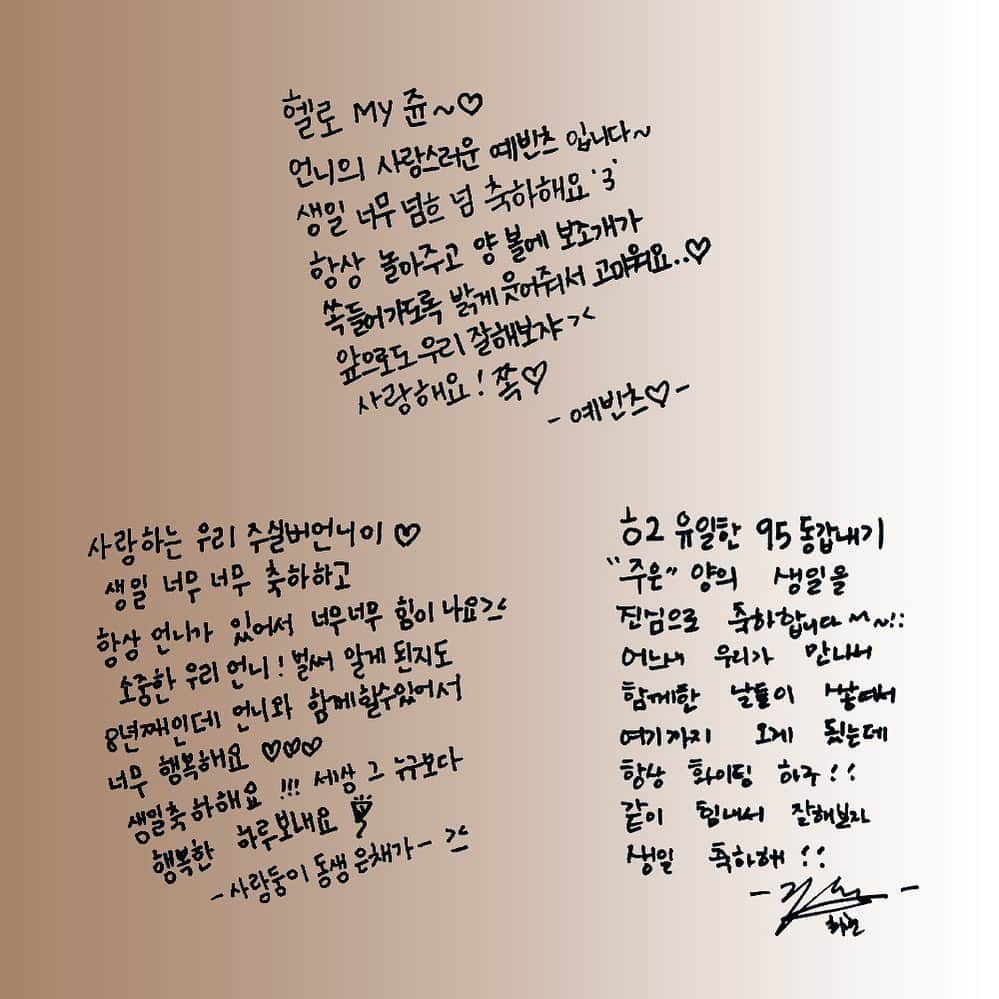 헬로 My 쥰~♡
언니의 사랑스러운 예빈츠 입니다~
생일 너무 넘흐 넘 축하해요 '3'
항상 놀아주고 양 볼에 보조개가
쏙들어가도록 밝게 웃어줘서 고마워요..♡
앞으로도 우리 잘해보쟈 ><
사랑해요! 쪽♡
- 예빈츠♡ -
사랑하는 우리 주실버언니이 ♡
생일 너무 너무 축하하고
항상 언니가 있어서 너무너무 힘이 나요><
소중한 우리 언니! 벌써 알게 된지도
8년째인데 언니와 함께할수있어서
너무 행복해요 ♡♡♡
생일축하해요 !!! 세상 그 누구보다
행복한 하루보내요
- 사랑둥이 동생 은채가 - ><
유일한 95 동갑내기
"주은" 양의 생일을
진심으로 축하합니다 ~!!
어느새 우리가 만나서
함께한 날들이 쌓여서
여기까지 오게 됐는데
항상 화이팅 하구 !!
같이 힘내서 잘해보자
생일 축하해 !!